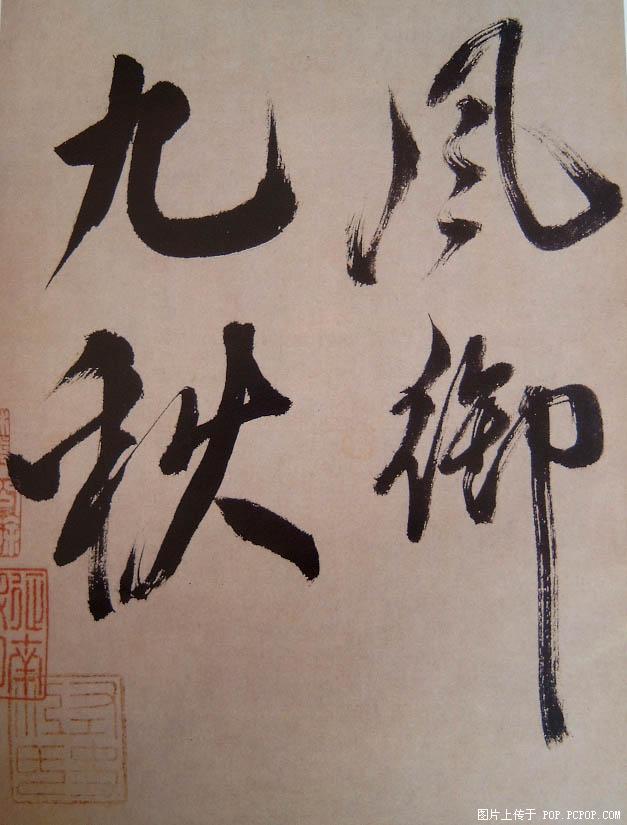 風御
九秋
图片上传于 POP.PCPOP.COM